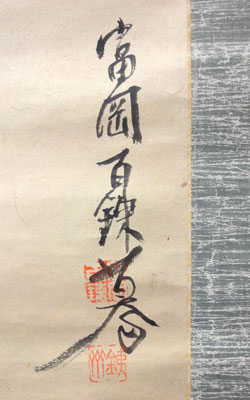 富岡百錬摹